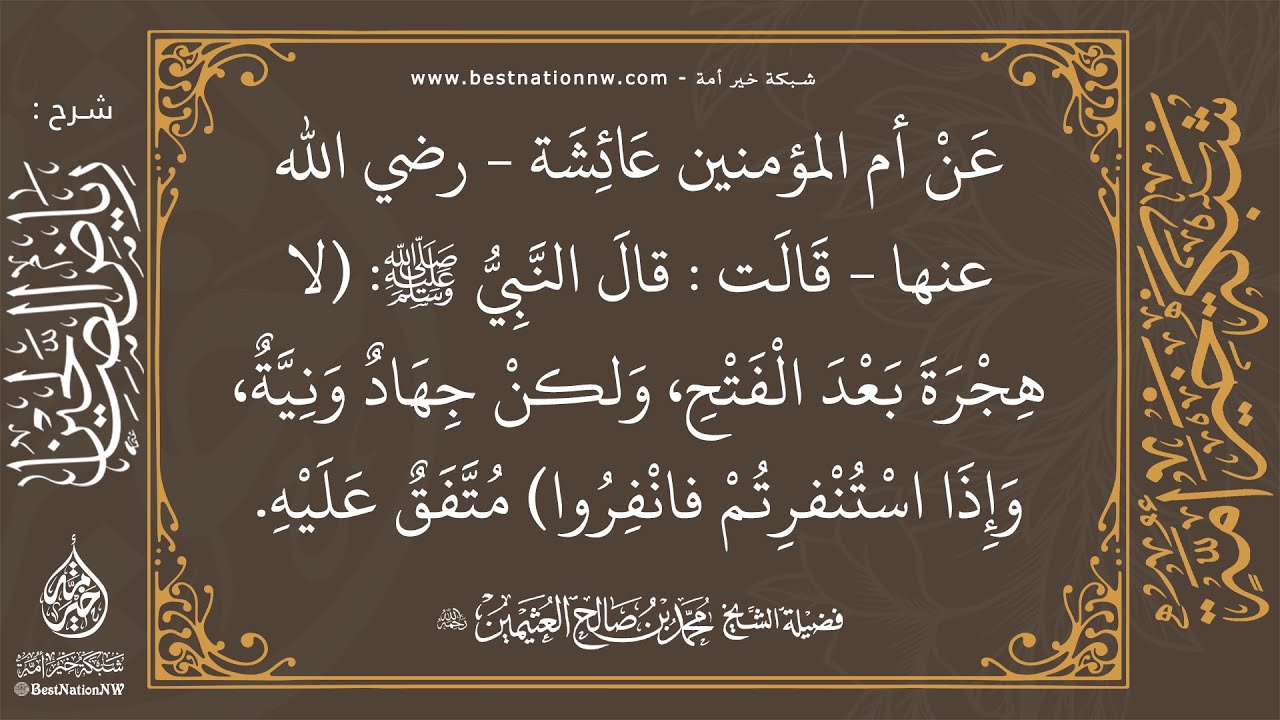 شبكة خير أمة - www.bestnationnw.com
شرح :
رياض الصالحين
عَنْ أم المؤمنين عَائِشَة - رضي الله
عنها - قَالَت : قالَ النَّبِيُّ ﷺ: (لا
هِجْرَةَ بَعْدَ الْفَتْحِ، وَلكنْ جِهَادٌ وَنِيَّةٌ،
وَإِذَا اسْتُنْفرِتُمْ فانْفِرُوا) مُتَّفَقٌ عَلَيْهِ.
فضيلة الشيخ محمد بن صالح العثيمين رحمه الله
شبكة خير أمة
خير أمة
شبكة خير أمة
BestNationNW